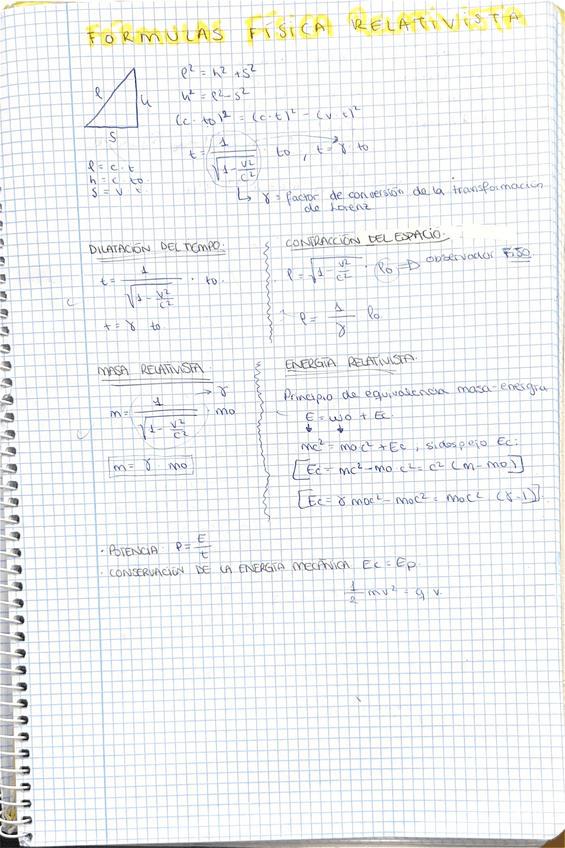 FÓRMULAS FÍSICA RELATIVISTA
l² = h² + s²
h² = l² - s²
(c · t0)² = (c · t)² - (v · t)²
t = 1 / √(1 - v²/c²) · t0 , t = γ · t0
l
h
s
l = c · t
h = c · t0
s = v · t
↳ γ = factor de conversión de la transformación
de Lorenz
DILATACIÓN DEL TIEMPO.
t = 1 / √(1 - v²/c²) · t0.
t = γ · t0
CONTRACCIÓN DEL ESPACIO.
l = √(1 - v²/c²) · l0 → observador FIJO.
l = 1/γ l0
MASA RELATIVISTA
→ γ
m = 1 / √(1 - v²/c²) · m0
m = γ · m0
ENERGÍA RELATIVISTA.
Principio de equivalencia masa-energía
E = W0 + Ec.
mc² = m0c² + Ec, si despejo Ec:
[Ec = mc² - m0c² = c² (m - m0)]
[Ec = γ m0c² - m0c² = m0c² (γ - 1)].
· POTENCIA: P = E/t
· CONSERVACIÓN DE LA ENERGÍA MECÁNICA Ec = Ep.
1/2 mv² = q · V.